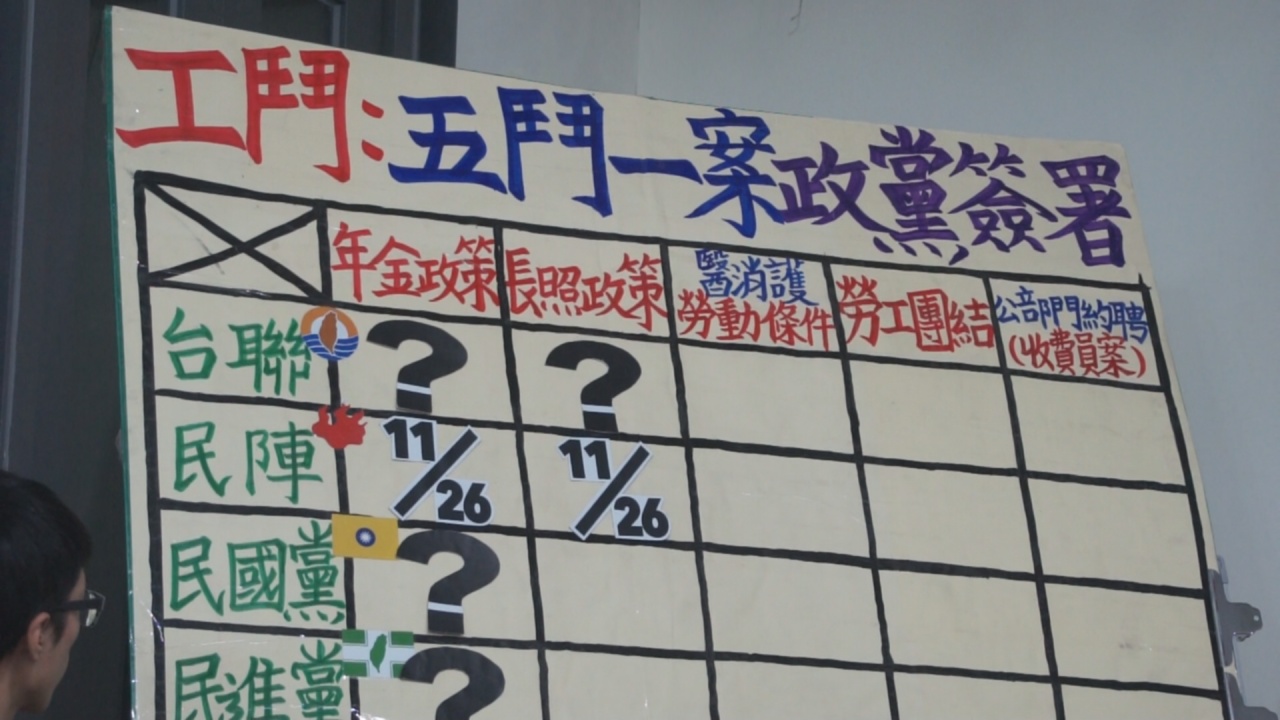 工鬥:五鬥一案政黨簽署
年金政策 長照政策 醫消護勞動條件 勞工團結 公部門約聘(收費員案)
台聯 ? ?
民陣 11/26 11/26
民國黨 ?
民進黨 ?